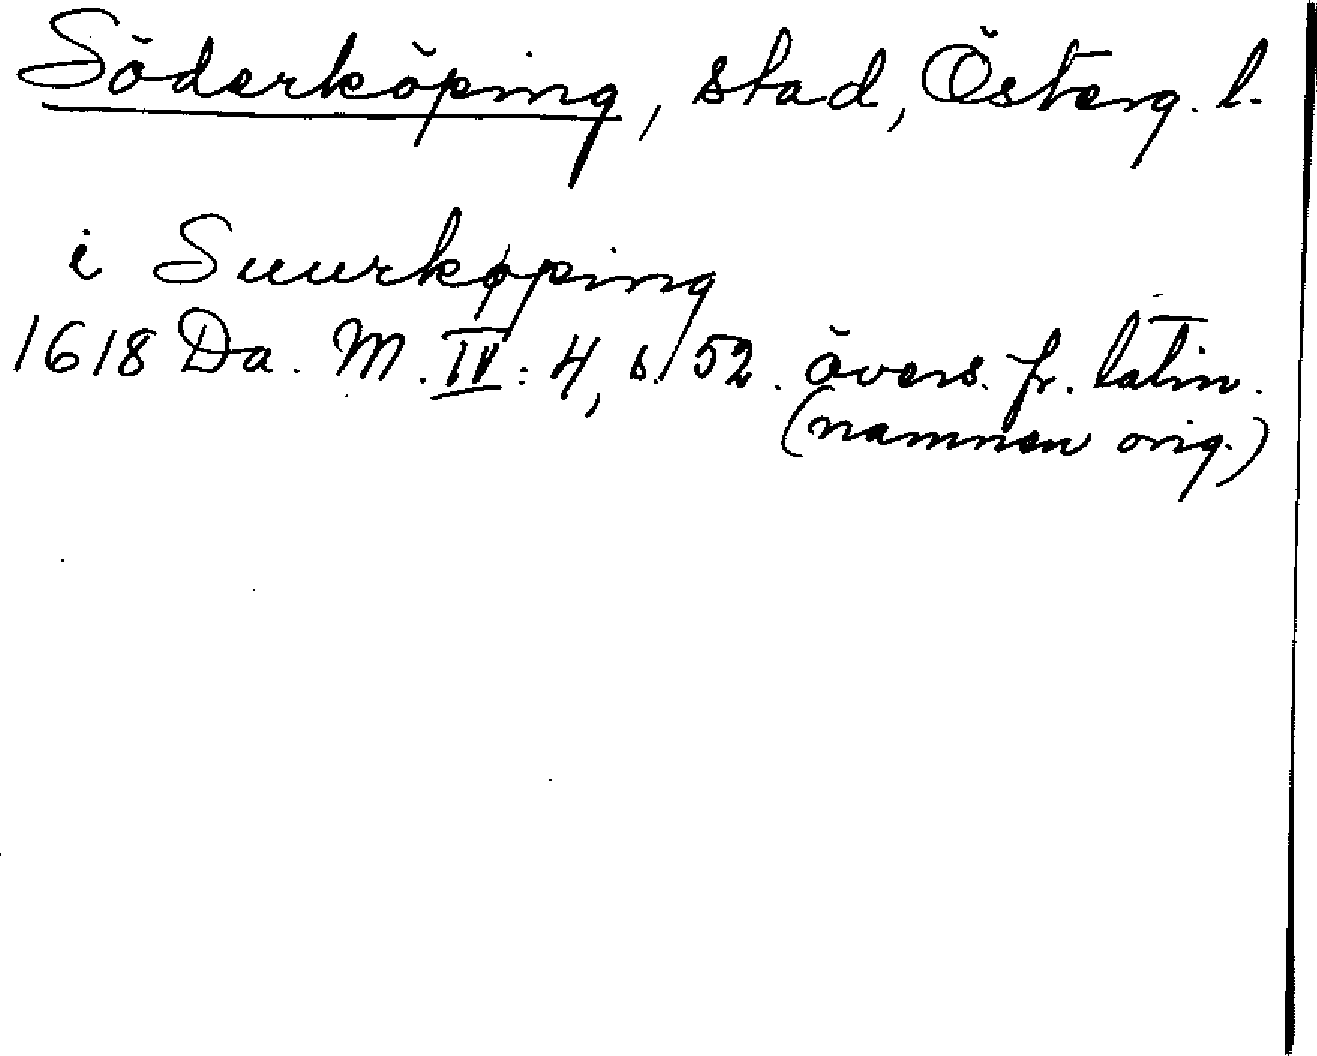 Söderköping, stad, Österg. l.
i Suurkøping
1618 Da. M. IV: 4, s. 52. övers. fr. latin.
(namnen orig.)